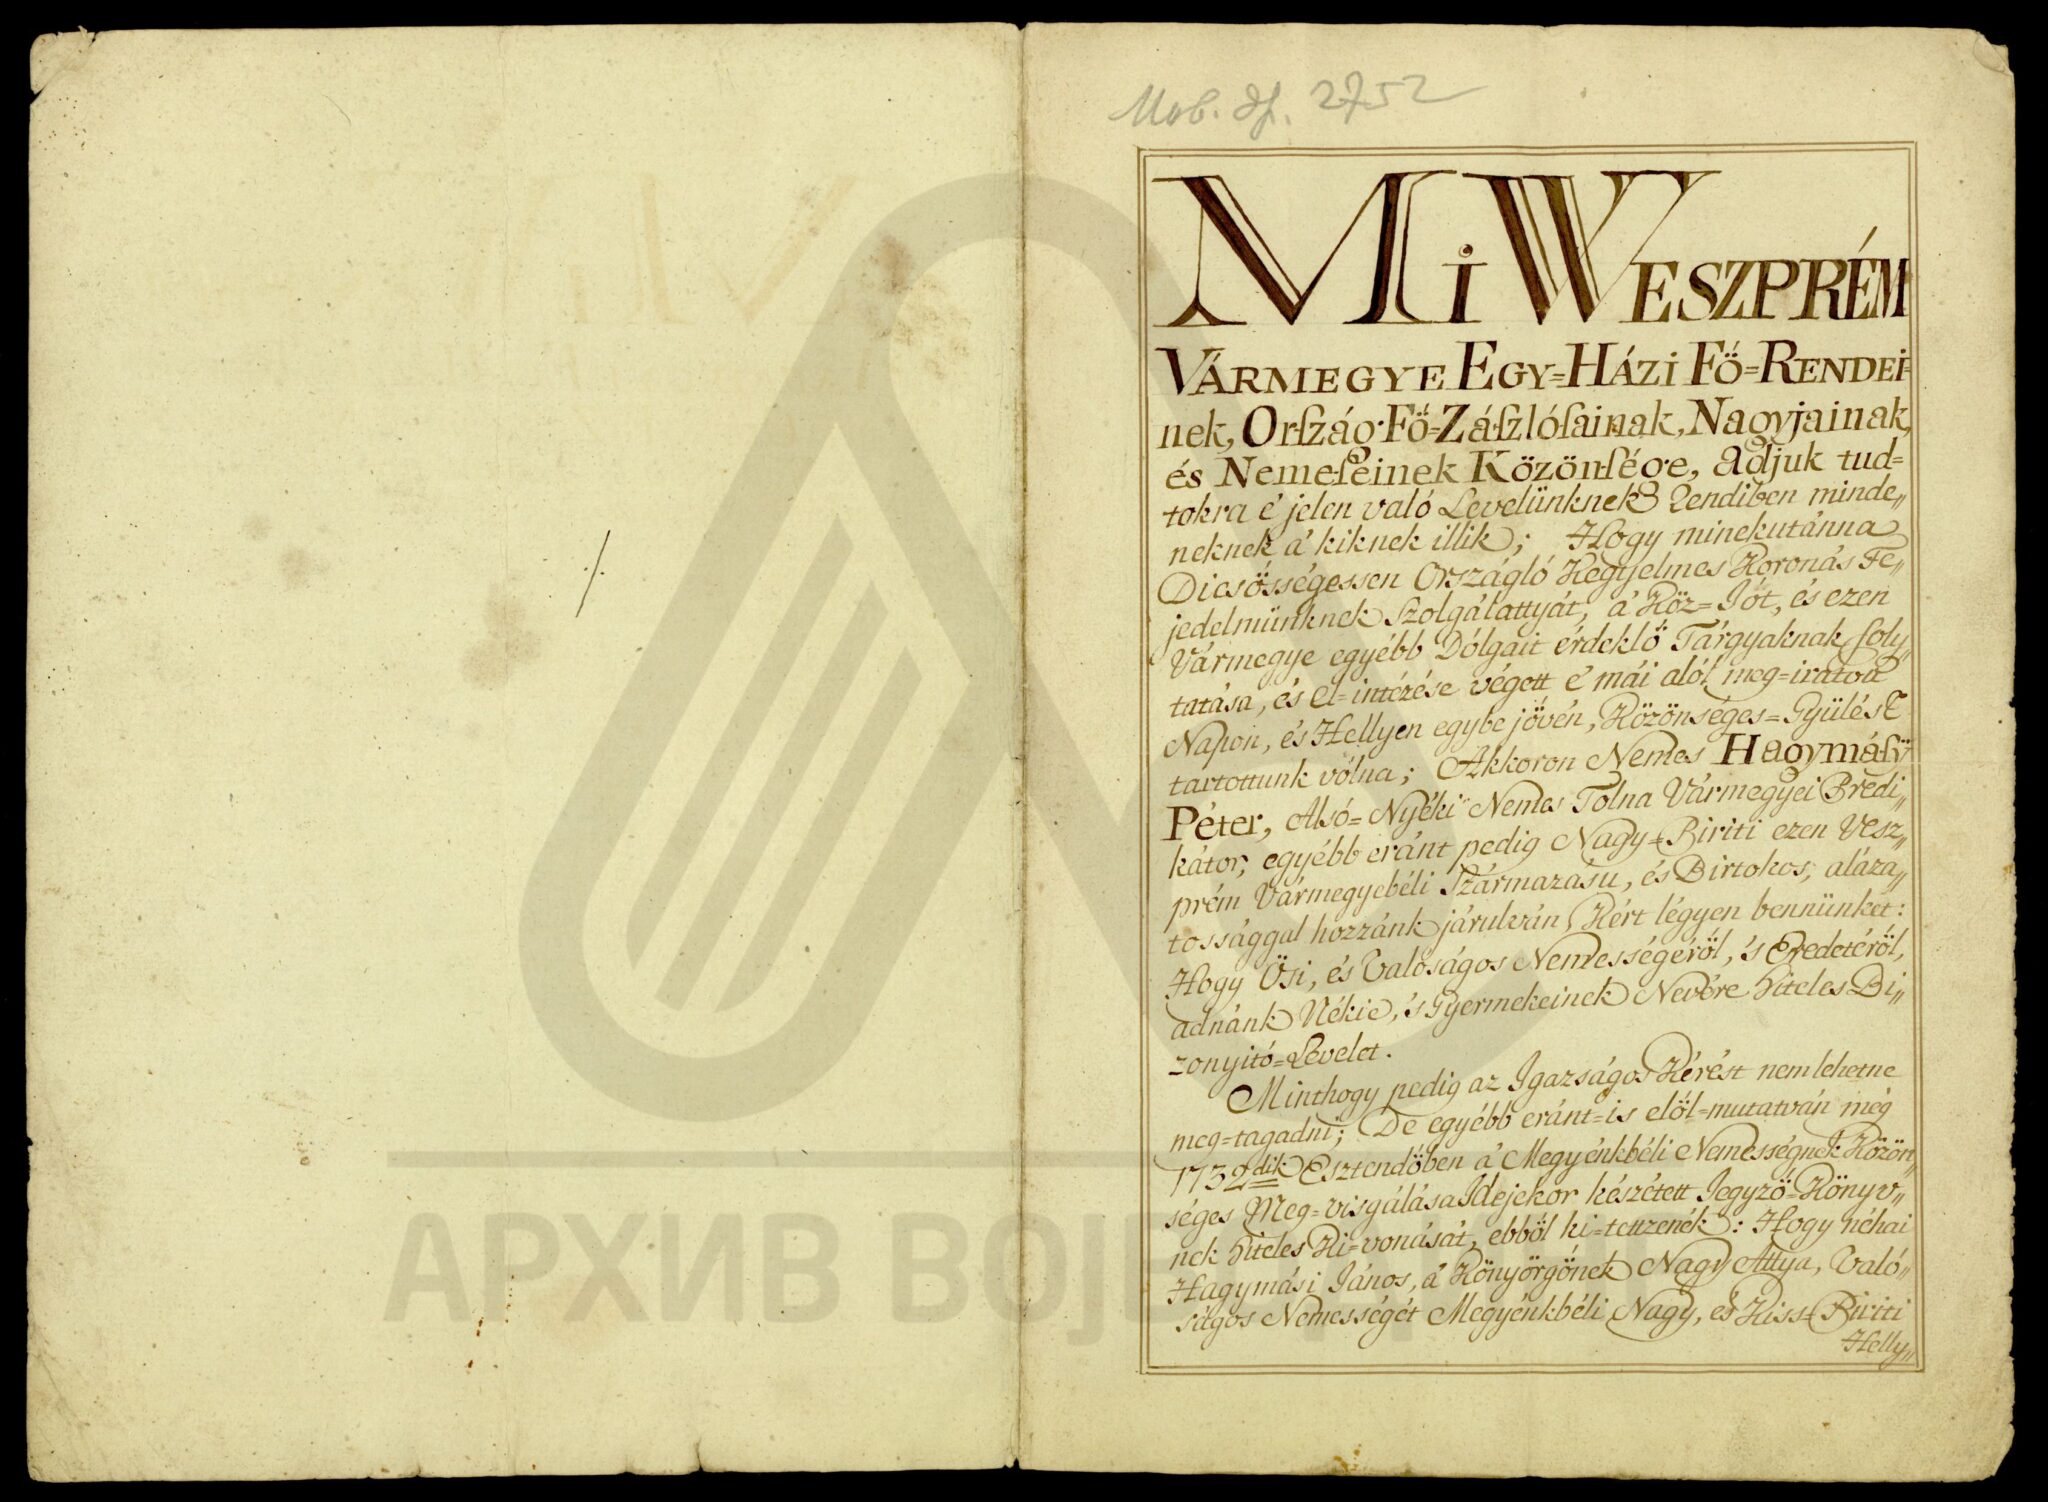 Mob. df. 2752
Mi WESZPRÉM
VÁRMEGYE EGY=HÁZi FŐ=RENDEi=
nek, Orſzág Fő=Záſzlóſainak, Nagyjainak,
és Nemeſeinek Közönſége, adjuk tud=
tokra é jelen való Levelünknek Rendiben minde„
neknek á kiknek illik; Hogy minekutánna
Dicsösségessen Országló Kegyelmes Koronás Fe„
jedelmünknek Szolgálattyát, á Köz=Jót, és ezen
Vármegye egyébb Dólgait érdeklő Tárgyaknak foly„
tatása, és el=intézése végett é mái alól meg=iratott
Napon, és Hellyen egybe jövén, Közönséges=Gyülést
tartottunk vólna; Akkoron Nemes Hagymáſÿ
Péter, Alsó=Nyéki Nemes Tolna Vármegyei Prédi„
kátor, egyébb eránt pedig Nagy=Piriti ezen Vesz„
prém Vármegyebéli Származásu, és Birtokos, aláza„
tossággal hozzánk járulván, Kért légyen bennünket:
Hogy Ősi, és Valóságos Nemességéröl, 's Eredetéröl,
adnánk Nékie, 's Gyermekeinek Nevére hiteles Bi„
zonyitó=Levelet.
Minthogy pedig az Igazságos Kérést nem lehetne
meg=tagadni; De egyébb eránt=is elöl=mutatván még
1732dik Esztendőben á Megyénkbéli Nemességnek Közön„
séges Meg=visgálása Idejekor készétett Jegyző=Könyv„
nek hiteles Ki=vonását, ebböl ki=tetszenék: Hogy néhai
Hagymási János, á Könyörgőnek Nagy Attya, Való„
ságos Nemességét Megyénkbéli Nagy, és Kiss=Piriti
Helly„
АРХИВ ВОЈ